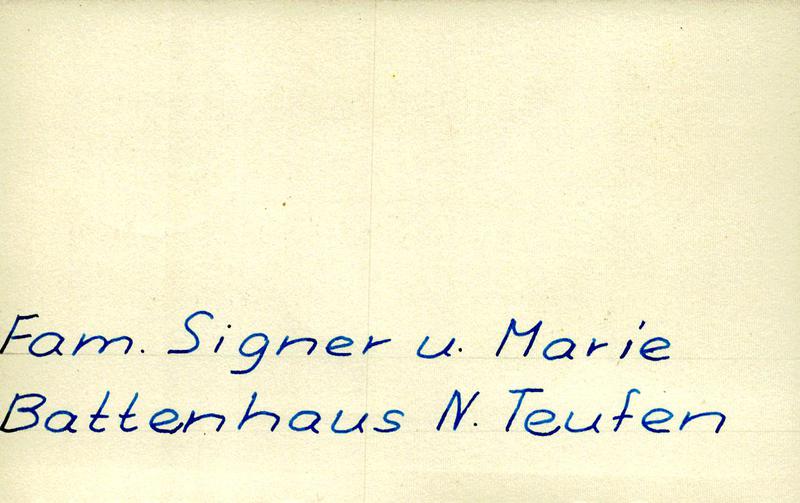 Fam. Signer u. Marie
Battenhaus N. Teufen